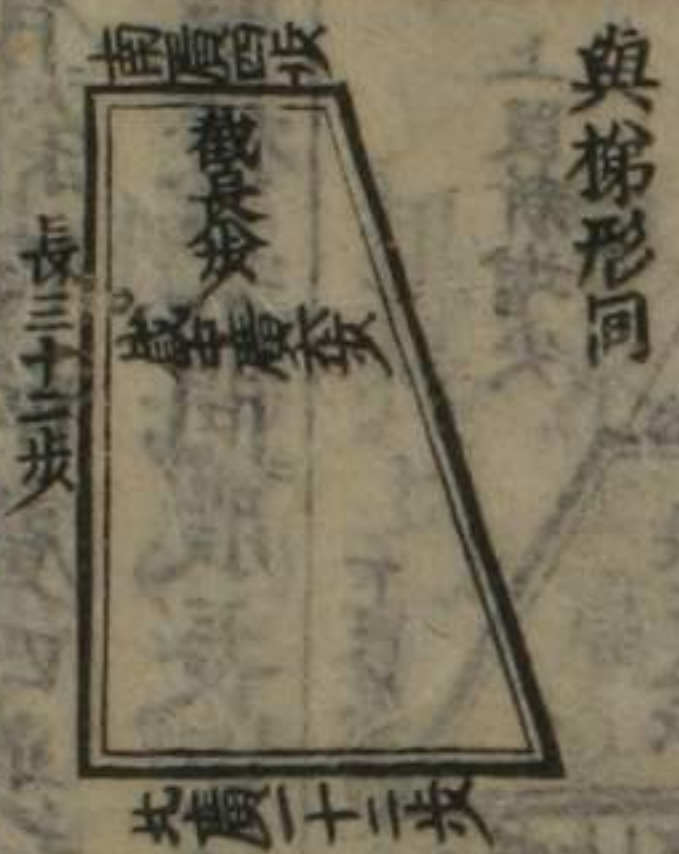 與梯形同
南廣四步
截長步
此截中廣六步
長三十二步
北廣一十二步